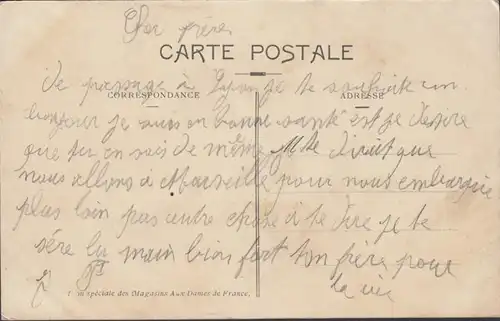 Cher frère
CARTE POSTALE
de passage à Lyon je te souhaite un
CORRESPONDANCE ADRESSE
bonjour je suis en bonne santé est je d'espre
que tu en sois de même Je te dirait que
nous allons à Marseille pour nous embarquie
plus loin pas autre chose à te dire je te
sère la main bien fort ton frère pour
la vie
spéciale des Magasins Aux Dames de France.